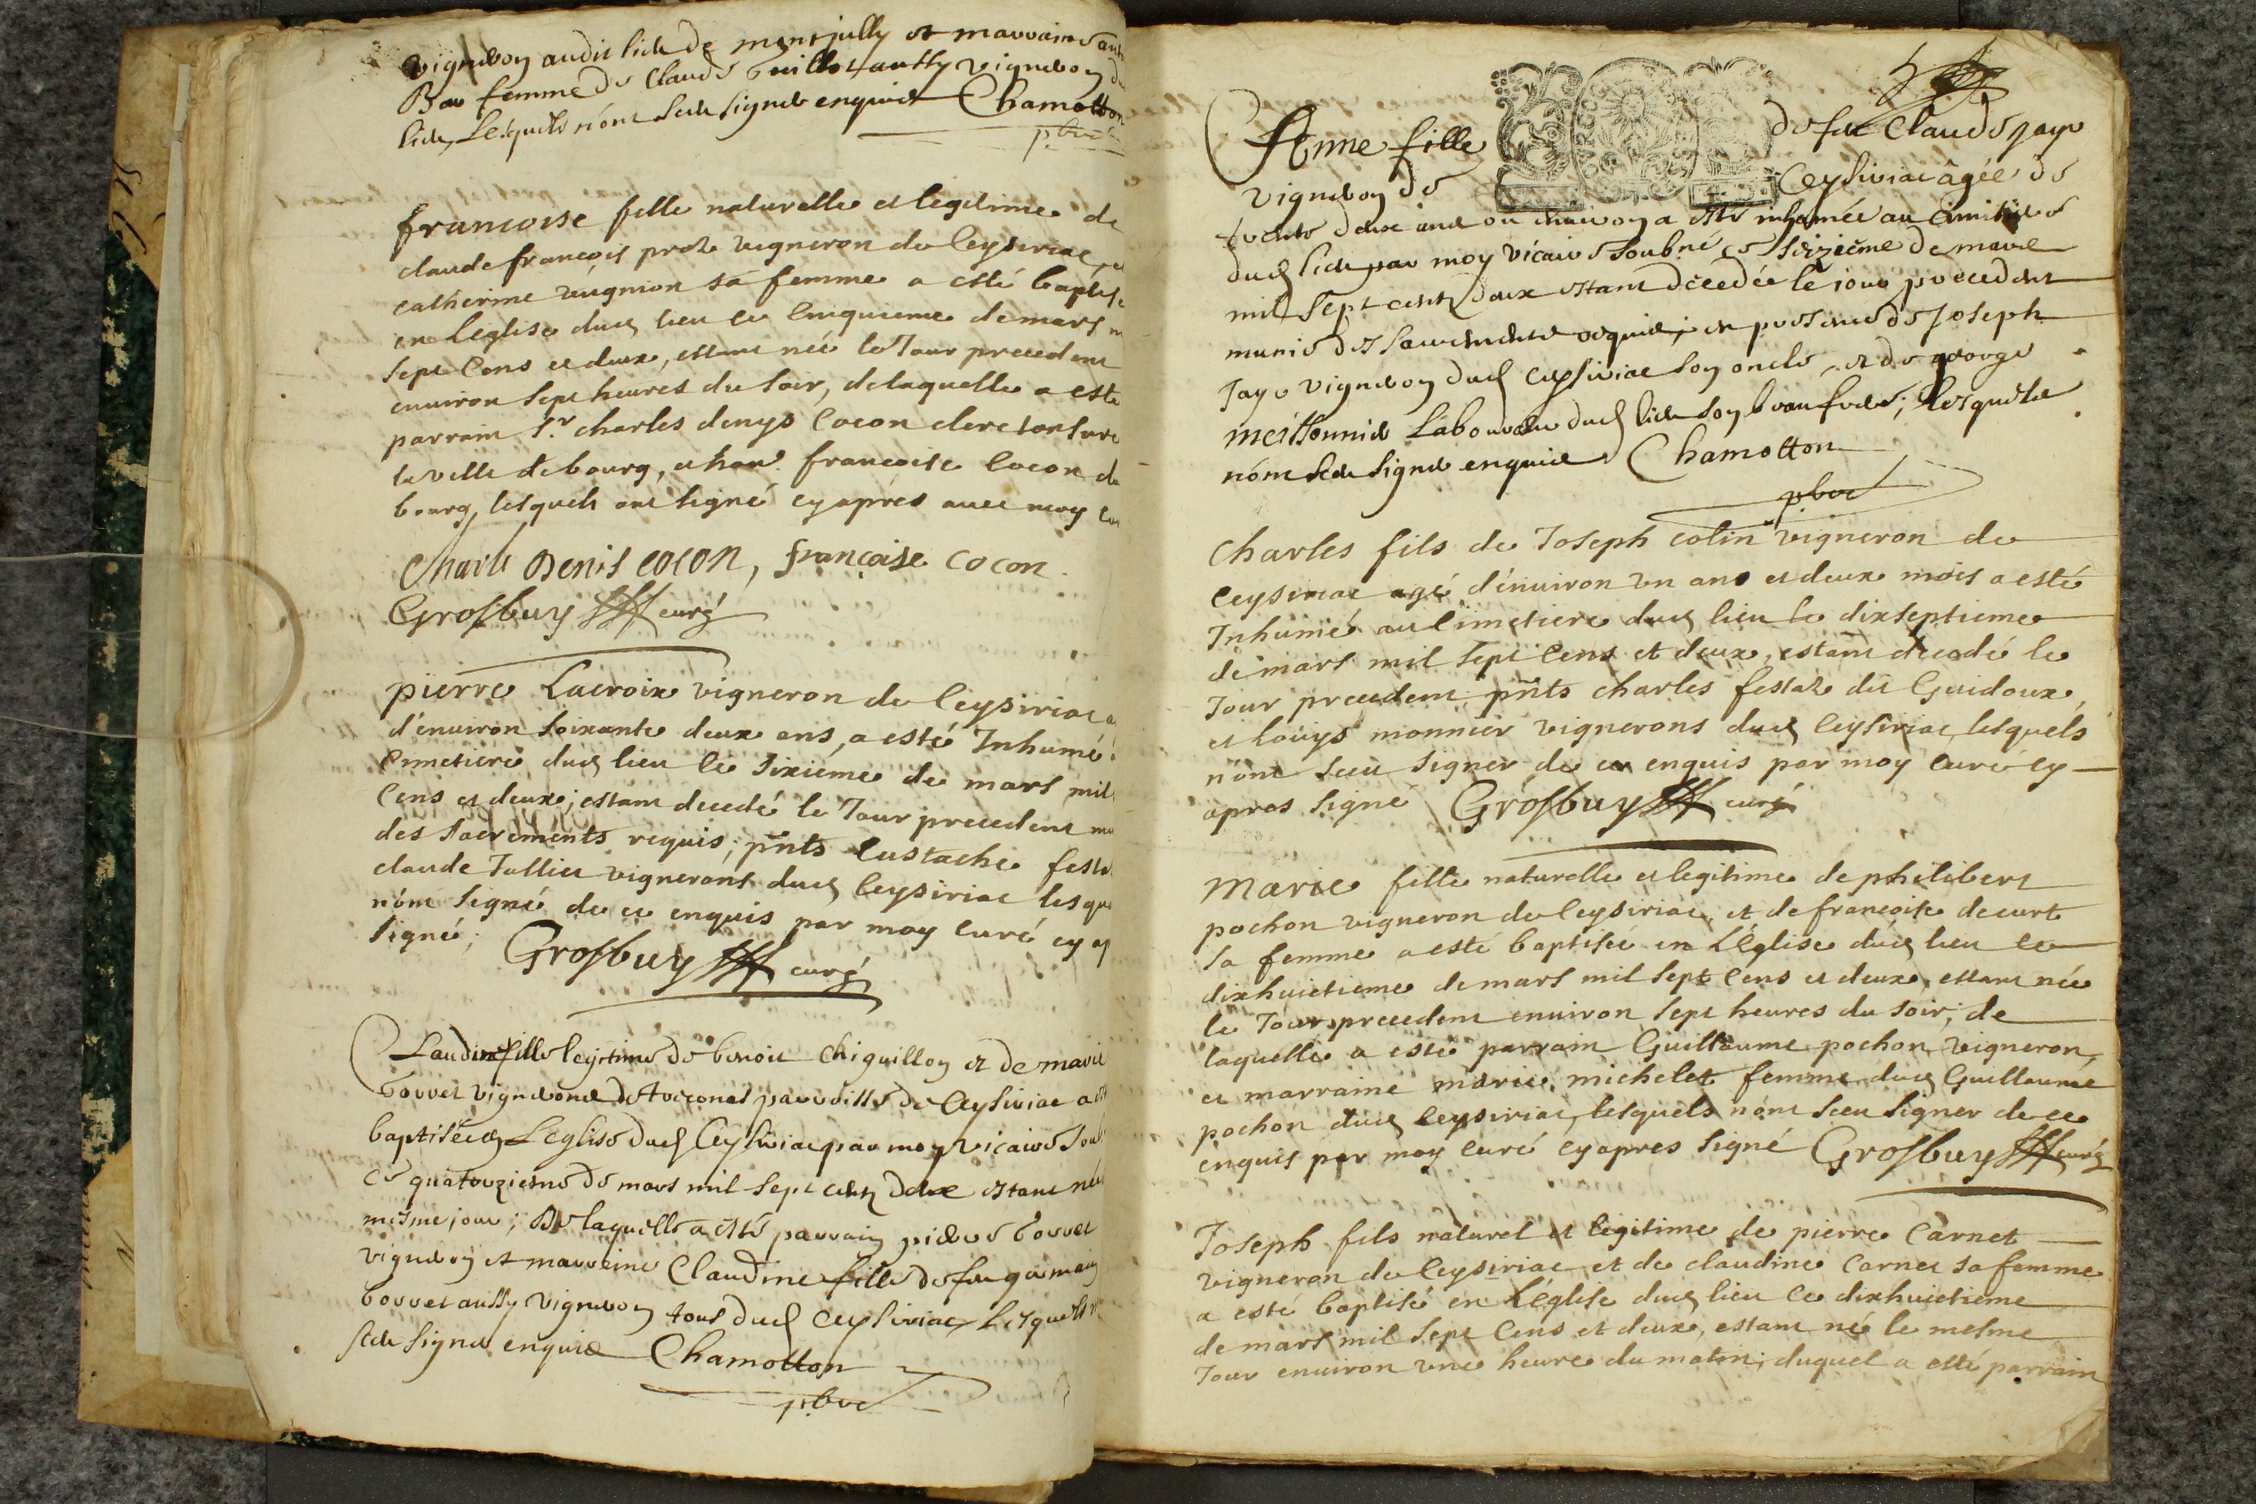 vigneron audit lieu de montjully et marraine
Bar femme de Claude Guillot aussy vigneron du
lieu, Lesquels n'ont sceu signer enquis Chamotton
pbre
francoise fille naturelle et legitime de
claude françois proh vigneron de Ceysiriac, et
catherine sa femme a esté baptisé
en Leglise dud lieu le cinquieme de mars
sept Cens et deux, estant née le Jour precedent
enuiron sept heures du soir, de laquelle a esté
parrain Sr charles denys Cocon clerc tonsuré
la ville de bourg, et françoise Cocon de
bourg, lesquels ont signé cy apres auec moy
Charle Denis COCON, françoise Cocon
Grosbuy curé
pierre Lacroix vigneron de Ceysiriac
d'enuiron soixante deux ans, a esté Inhumé
Cimetiere dud lieu le sixieme de mars mil
Cens et deux; estant decedé le Jour precedent
des sacrements requis; pnts Eustache
claude Jullien vignerons dud Ceysiriac
n'ont signé de ce enquis par moy curé cy
signé; Grosbuy curé
Claudine fille legitime de benoit Chiguillon et de marie
bovvet vignerons parroisse de Ceysiriac
baptisée en L'Eglise dud Ceysiriac par moy vicaire
ce quatorzieme de mars mil sept cents deux estant née
mesme jour; De laquelle a esté parrain pierre bovvet
vigneron et marraine Claudine fille de feu germain
bovvet aussy vigneron tous dud Ceysiriac, Lesquels
sceu signer enquis Chamotton
pbre
Anne fille de feu Claude Jayr
vigneron de Ceysiriac âgée de
trente deux ans ou environ a esté inhumée au Cimitiere
dud lieu par moy vicaire soubné ce seizième de mars
mil sept cents deux estant décedée le jour precedent
munie des sacrements requis; en presence de Joseph
Jayr vigneron dud Ceysiriac son oncle, et de george
meissonnier Laboureur dud lieu son beau frere; Lesquels
n'ont sceu signer enquis Chamotton
pbre
Charles fils de Joseph Colin vigneron de
Ceysiriac agé d'énuiron vn ans et deux mois a esté
Inhumé au Cimetiere dud lieu le dixseptieme
de mars mil sept Cens et deux, estant decedé le
Jour precedent pnts charles festaz dit Guidoux,
et Louys monnier vignerons dud Ceysiriac, lesquels
n'ont sceu signer de ce enquis par moy curé cy
apres signé Grosbuy curé
Marie fille naturelle et legitime de philibert
pochon vigneron de Ceysiriac, et de francoise decurt
sa femme a esté baptisée en L'Eglise dud lieu le
dixhuictieme de mars mil sept Cens et deux, estant née
le Jour precedent enuiron sept heures du soir; de
laquelle a esté parrain Guillaume pochon vigneron,
et marraine marie michelet femme dud Guillaume
pochon dud Ceysiriac, lesquels n'ont sceu signer de ce
enquis par moy curé cy apres signé Grosbuy curé
Joseph fils naturel et legitime de pierre Carnet
vigneron de Ceysiriac et de claudine Carnet sa femme
a esté baptisé en L'église dud lieu le dixhuictieme
de mars mil sept Cens et deux, estant né le mesme
Jour enuiron vne heure du matin; duquel a esté parrain